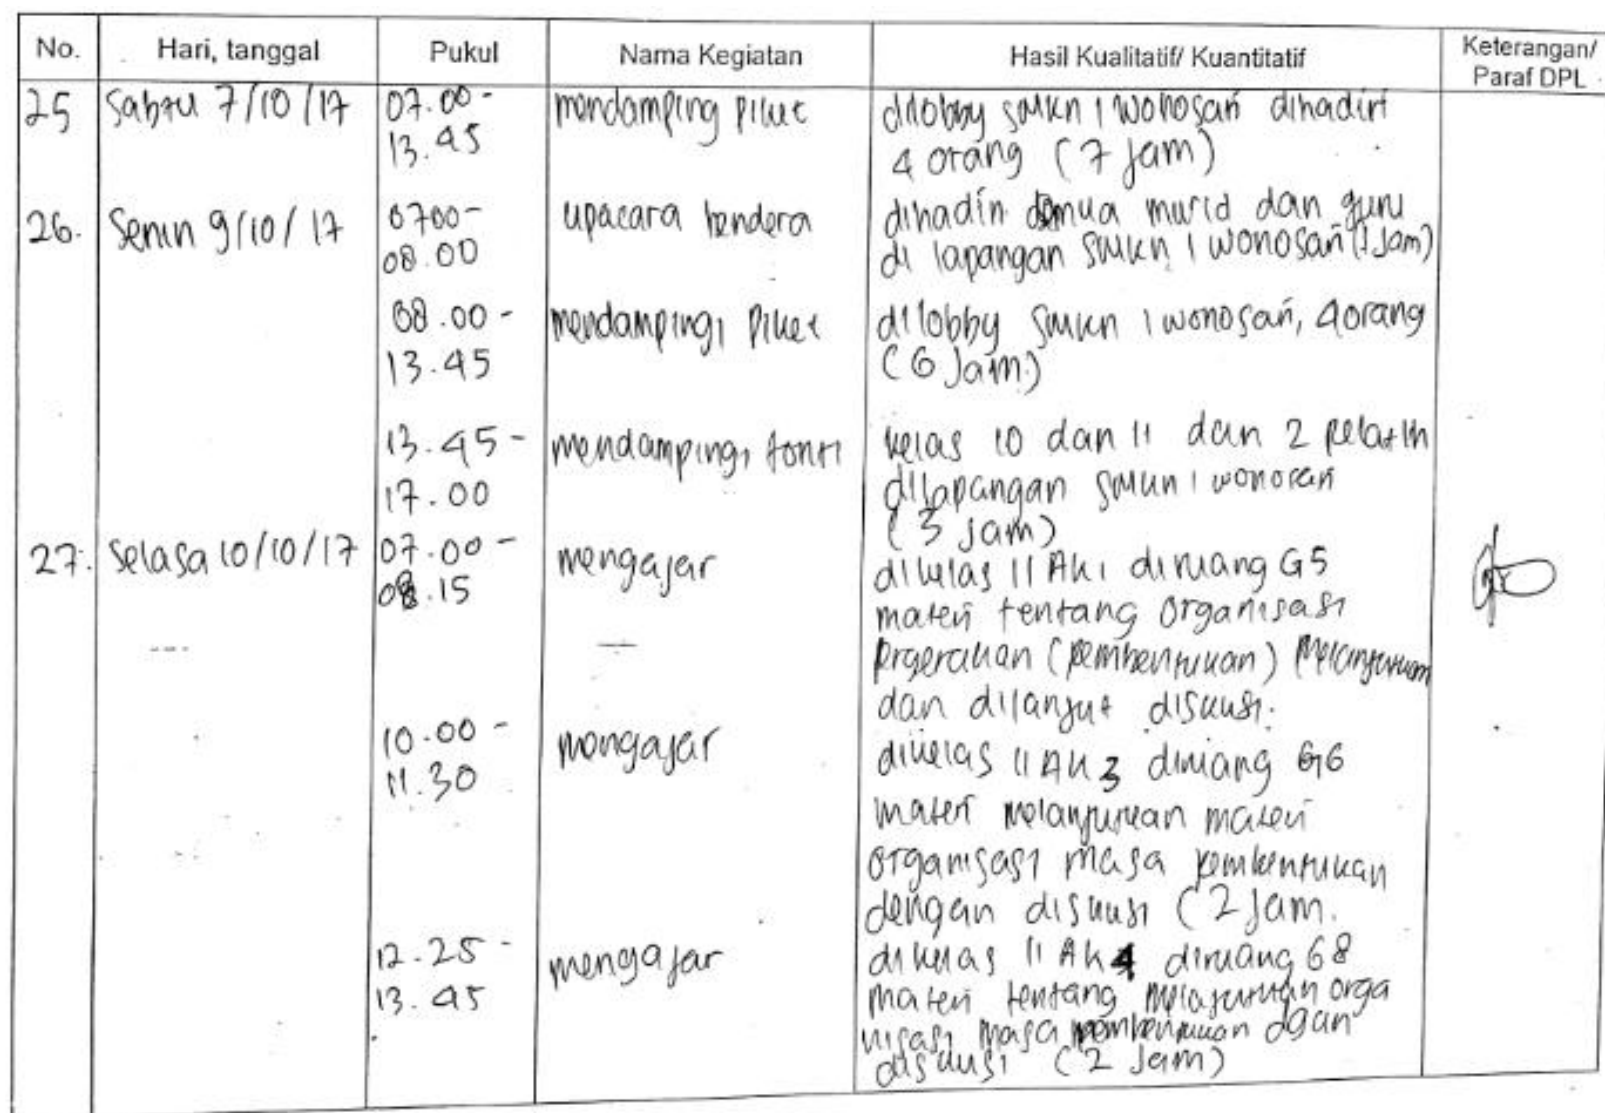 No. Hari, tanggal Pukul Nama Kegiatan Hasil Kualitatif/ Kuantitatif Keterangan/
Paraf DPL
25 Sabtu 7/10/17 07.00- mendamping piket dilobby smkn 1 wonosari dihadiri
13.45 4 orang (7 jam)
26. Senin 9/10/17 0700- upacara bendera dihadiri semua murid dan guru
08.00 di lapangan smkn 1 wonosari (1 jam)
08.00- mendampingi piket dilobby smkn 1 wonosari, 4orang
13.45 (6 jam)
13.45- mendampingi tonti kelas 10 dan 11 dan 2 pelatih
17.00 dilapangan smkn 1 wonosari
(3 jam)
27. Selasa 10/10/17 07.00- mengajar dikelas 11 Ak1 diruang G5
08.15 materi tentang organisasi
prgerakan (pembentukan)
dan dilanjut diskusi.
10.00- mengajar dikelas 11 AK3 diruang G6
11.30
materi melanjutkan materi
organisasi masa pembentukan
dengan diskusi (2 jam.
12.25- mengajar dikelas 11 Ak4 diruang G8
13.45 materi tentang orga
nisasi masa pembentukan dgan
diskusi (2 jam)